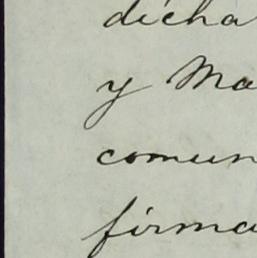 dicha
y Ma
comun
firma